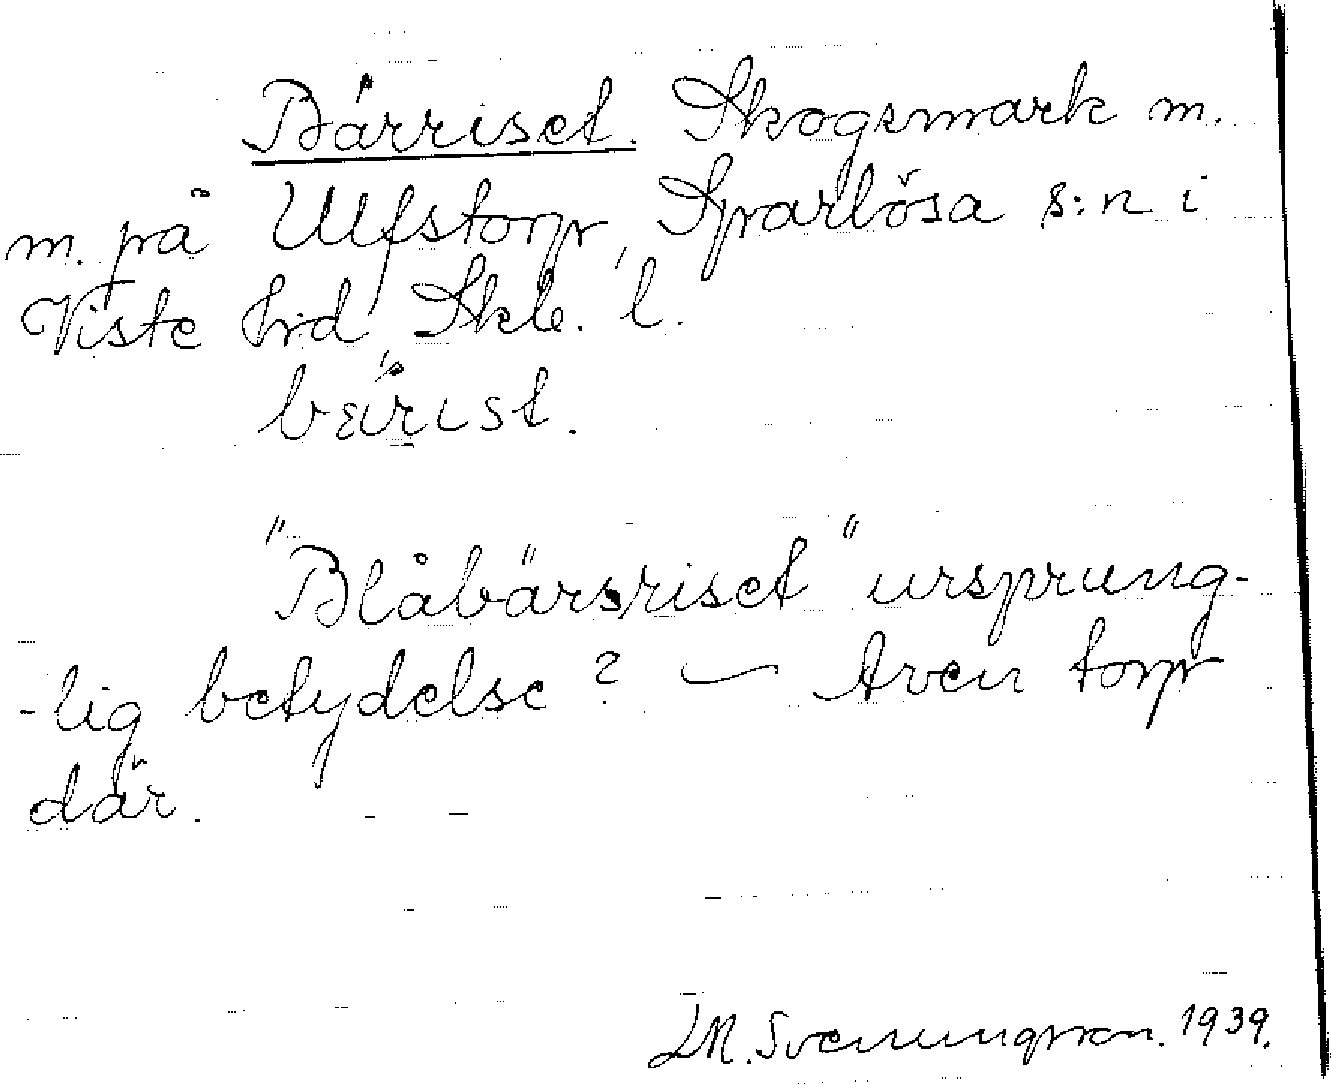 Bärriset. Skogsmark m.
m. på Ulfstorp, Sparlösa s:n i
Viste hrd, Skb. l.
bærɩst.
"Blåbärsriset" ursprung-
-lig betydelse? — Även torp
där.
M. Svenungsson. 1939.